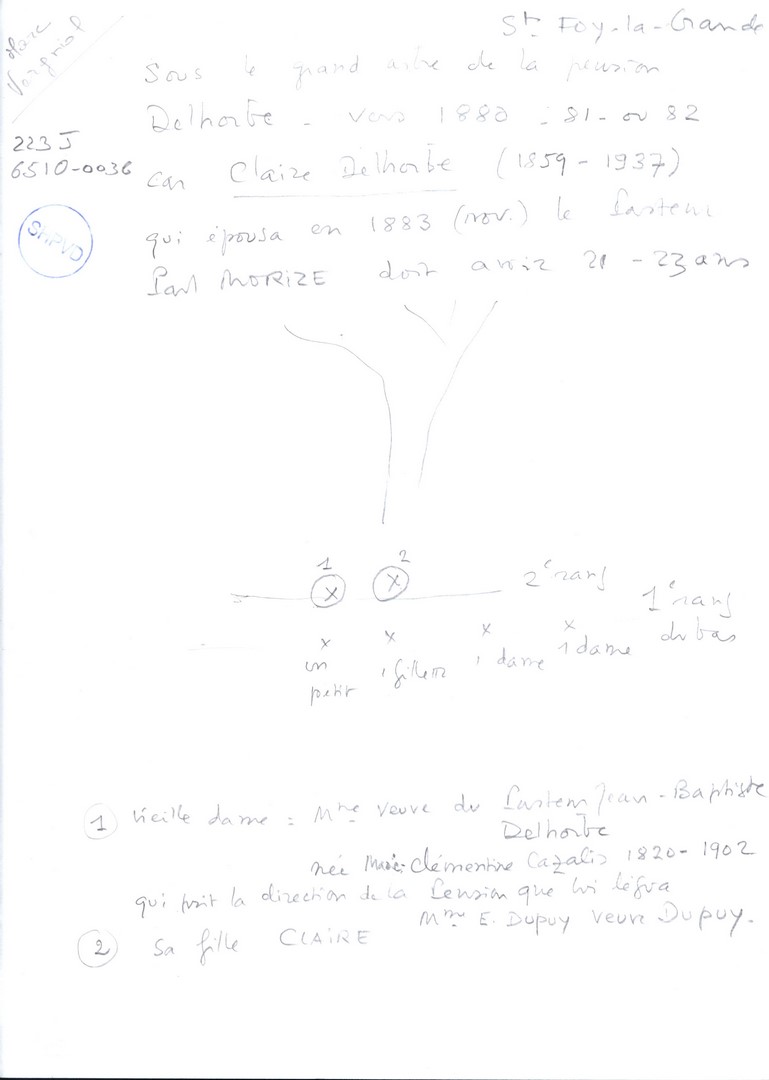 Marc
Vorgniol
St Foy-la-Grande
Sous le grand arbre de la pension
Delhorbe - vers 1880 - 81 - ou 82
223 J
6510-0036
car Claire Delhorbe (1859 - 1937)
SHPVD
qui épousa en 1883 (nov.) le Pasteur
Paul MORIZE doit avoir 21 - 23 ans
1 2
x x 2e rang
1e rang
du bas
x x x x
un petit
1 fillette
1 dame
1 dame
1 Vieille dame : Mme Veuve du Pasteur Jean-Baptiste
Delhorbe
née Marie-Clémentine Cazalis 1820 - 1902
qui prit la direction de la Pension que lui légua
Mme E. Dupuy veuve Dupuy.
2 Sa fille CLAIRE